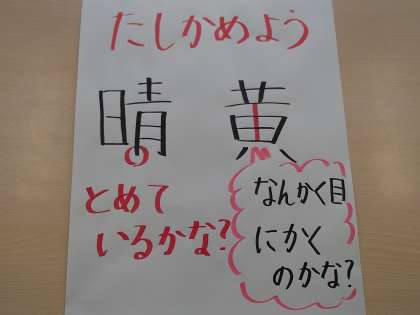 たしかめよう
晴 黄
とめて
いるかな?
なんかく目
にかく
のかな?